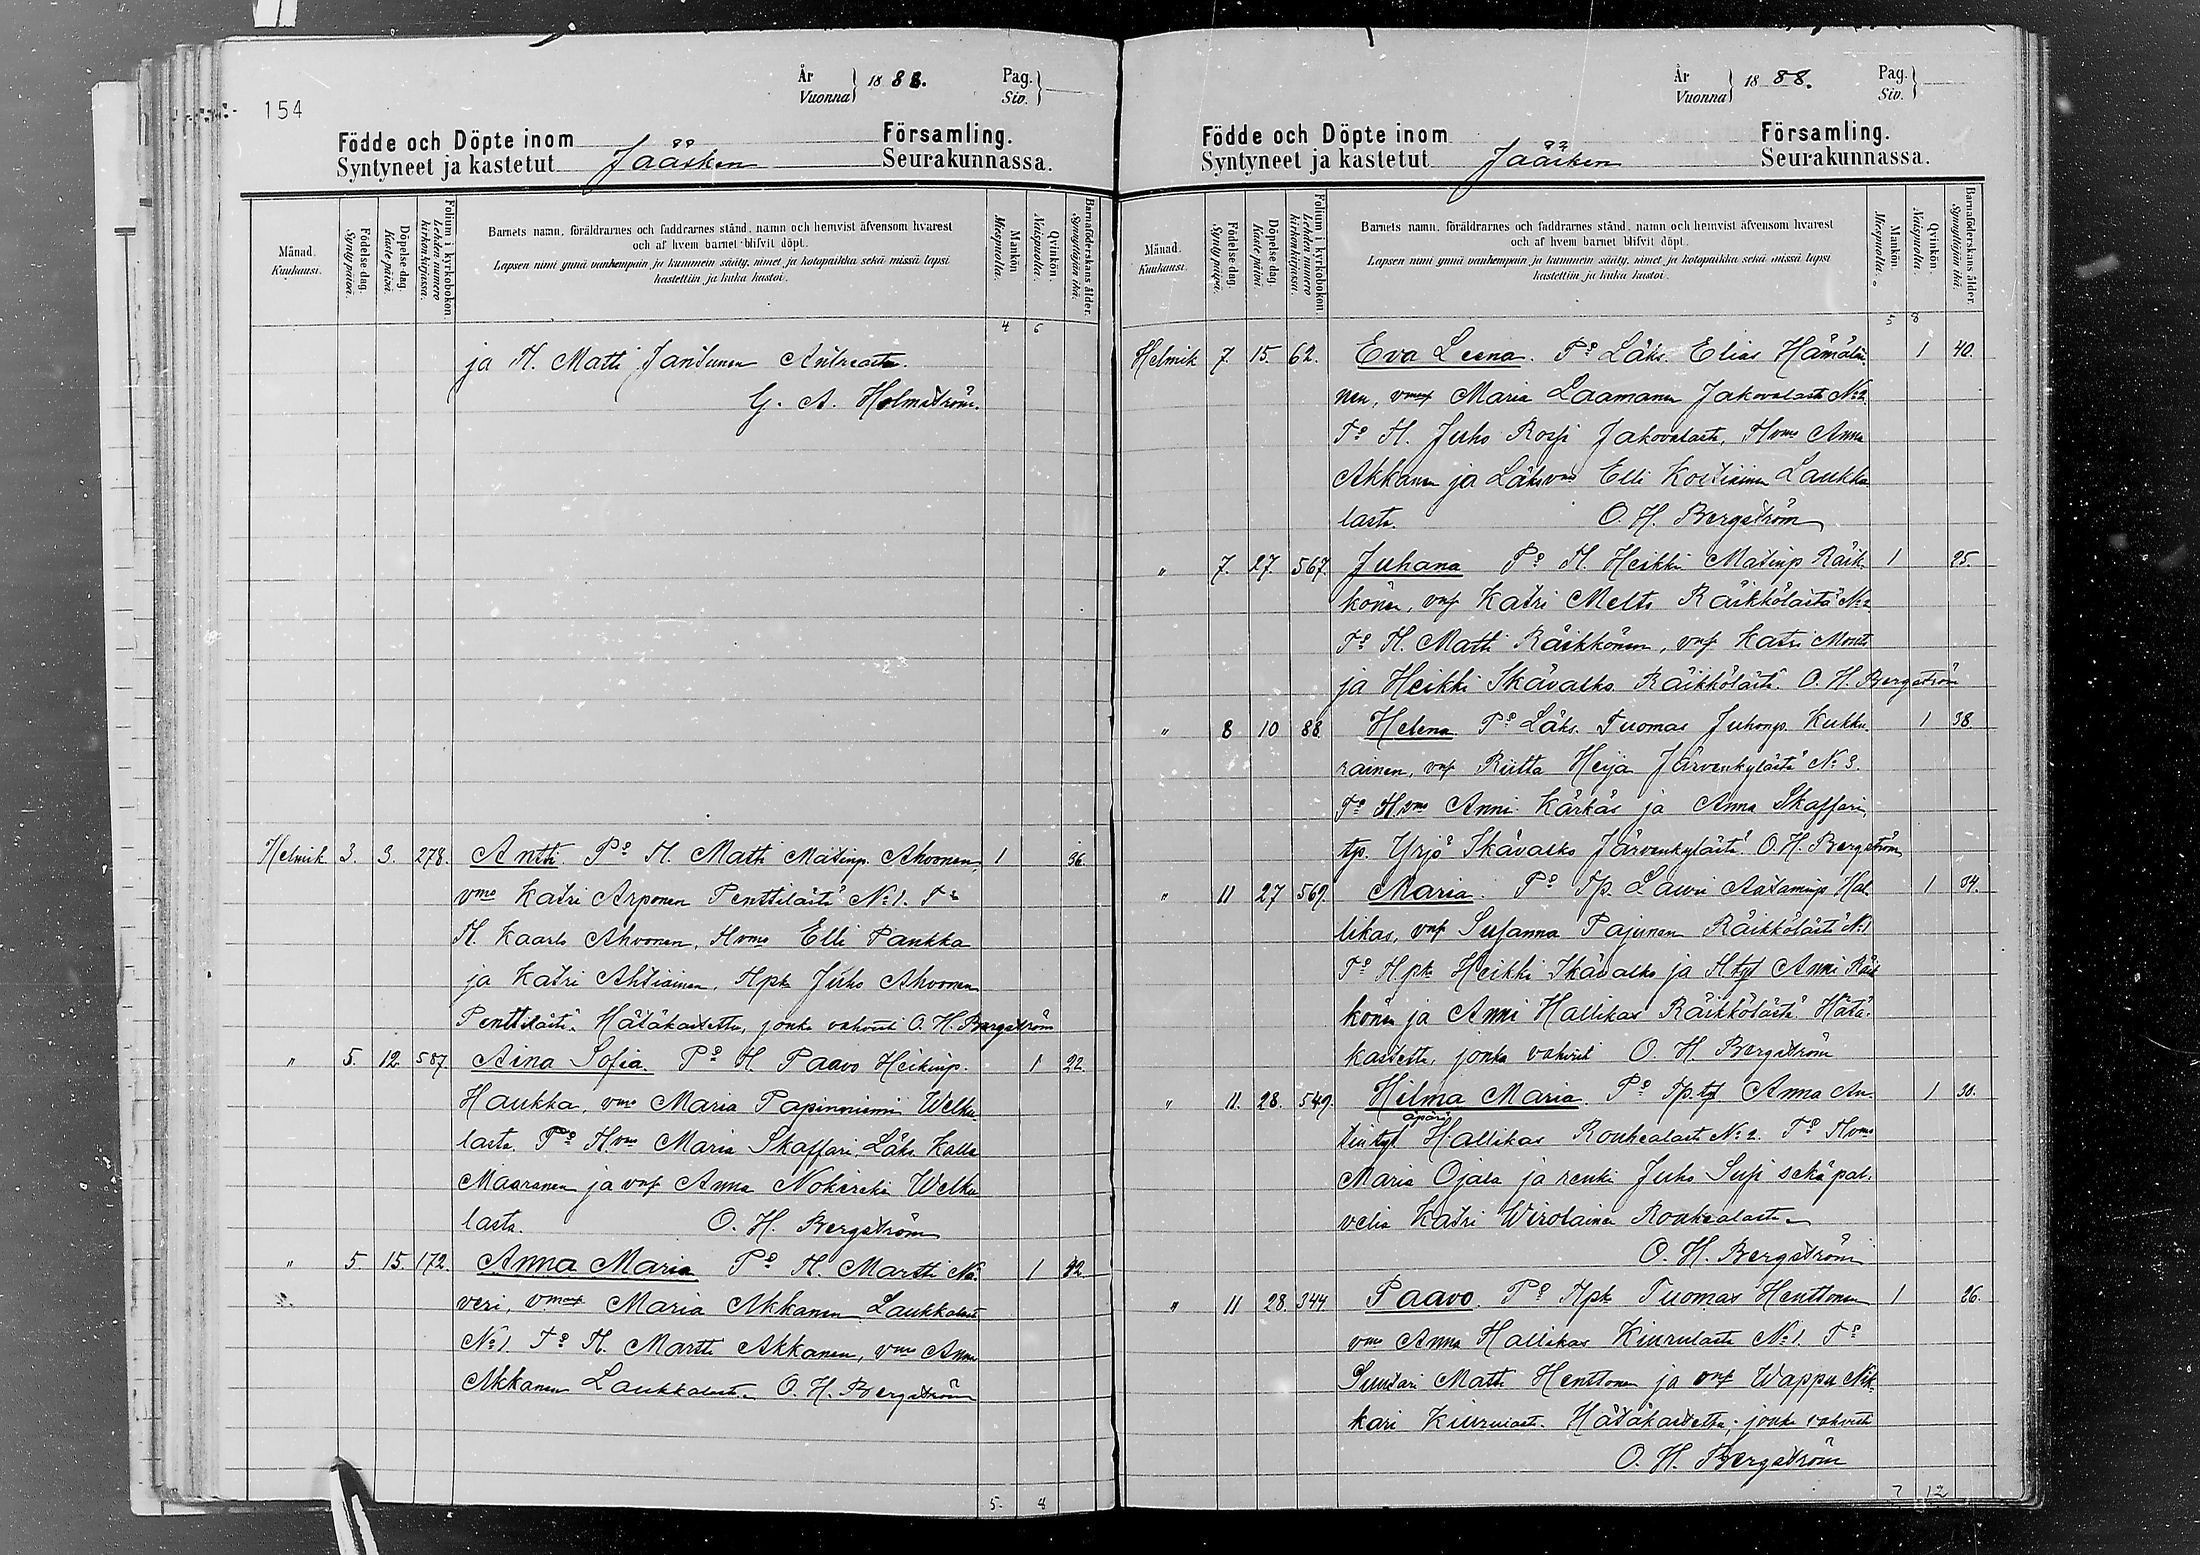 154
År
Vuonna
1888.
Pag.
Siv.
Födde och Döpte inom
Församling.
Syntyneet ja kastetut
Jääsken
Seurakunnassa.
Månad.
Kuukausi.
Födelse dag.
Synty päivä.
Döpelse dag.
Kaste päivä.
Folium i kyrkobokon.
Lehden numero kirkonkirjassa.
Barnets namn, föräldrarnes och faddrarnes stånd, namn och hemvist äfvensom hvarest
och af hvem barnet blifvit döpt.
Lapsen nimi ynnä vanhempain ja kummein sääty, nimet ja kotopaikka sekä missä lapsi
kastettiin ja kuka kastoi.
Mankön
Miespuolta.
Qvinkön.
Naispuolta.
Barnaföderskans ålder.
Synnyttäjän ikä.
4 6
ja H. Matti Jantunen
G. A. Holmström.
Helmik 3. 3. 278. Antti Po H. Matti Matinp. Ahvonen, 1 36
vmo Katri Arponen Penttilästä No 1. To
H. Kaarlo Ahvonen, Hvmo Elli Pankka
ja Katri Ahtiainen, Hpk Juho Ahvonen
Penttilästä. Hätäkastettu, jonka vahvisti O. H. Bergström
" 5. 12. 587 Aina Sofia. Po H. Paavo Heikinp. 1 22
Haukka, vmo Maria Papinniemi Welka
lasta. To Hvmo Maria Skaffari, Läks. Kalle
Maaranen ja vaf Anna Welka
lasta. O. H. Bergström
" 5 15. 172. Anna Maria Po H. Martti Na 1 42
veri, Maria Akkanen Laukkalasta
No 1. To H. Martti Akkanen, vmo Anna
Akkanen Laukkalasta O. H. Bergström
5. 8
År
Vuonna
1888.
Pag.
Siv.
Födde och Döpte inom
Församling.
Syntyneet ja kastetut
Jääsken
Seurakunnassa.
Månad.
Kuukausi.
Födelse dag.
Synty päivä.
Döpelse dag.
Kaste päivä.
Folium i kyrkobokon.
Lehden numero kirkonkirjassa.
Barnets namn, föräldrarnes och faddrarnes stånd, namn och hemvist äfvensom hvarest
och af hvem barnet blifvit döpt.
Lapsen nimi ynnä vanhempain ja kummein sääty, nimet ja kotopaikka sekä missä lapsi
kastettiin ja kuka kastoi.
Mankön.
Miespuolta.
Qvinkön.
Naispuolta.
Barnaföderskans ålder.
Synnyttäjän ikä.
5 8
Helmik 7. 15. 62. Eva Leena. Po Läks. Elias Hämäläi 1 40.
nen, Maria Laamanen Jakovalasta No 2.
To H. Juho Rossi Jakovalasta, Hvmo Anna
Akkanen ja Läksvmo Elli Kostiainen Laukka
lasta. O. H. Bergström
" 7. 27. 567. Juhana Po H. Heikki Matinp Räik- 1 25.
könen, vaf Katri Melto Räikkölästä No 2
To H. Matti Räikkönen, vaf Katri
ja Heikki Skävalko Räikkölästä. O. H. Bergström
" 8 10 88. Helena Po Läks. Tuomas Juhonp. Kukku. 1 38
rainen, vaf Riitta Heija Järvenkylästä No 3.
To Hvmo Anni Kärkäs ja Anna Skaffari,
tp. Yrjö Skävalko Järvenkylästä. O. H. Bergström
" 11 27 569. Maria. Po Tp. Lauri Aataminp Hal 1 34.
likas, vaf Susanna Pajunen Räikkölästä No 1
To Hpk Heikki Skävalko ja Htyt Anni Räik
könen ja Anni Hallikas Räikkölästä. Hätä.
kastettu, jonka vahvisti O. H. Bergström
" 11. 28. 549. Hilma Maria. Po Tp. tyt Anna An. 1 30.
äpärä
tintyt Hallikas Rouhealasta No 2. To Hvmo
Maria Ojala ja renki Juho Susi sekä pal.
velia Katri Wirolainen Rouhealasta
O. H. Bergström
" 11 28. 344. Paavo. Po Hpk Tuomas Henttonen 1 26.
vmo Anna Hallikas Kiurulasta No 1. To
Suutari Matti Henttonen ja vaf Wappu Nik-
kari Kiurulasta. Hätäkastettu; jonka vahvisti
O. H. Bergström
7 12